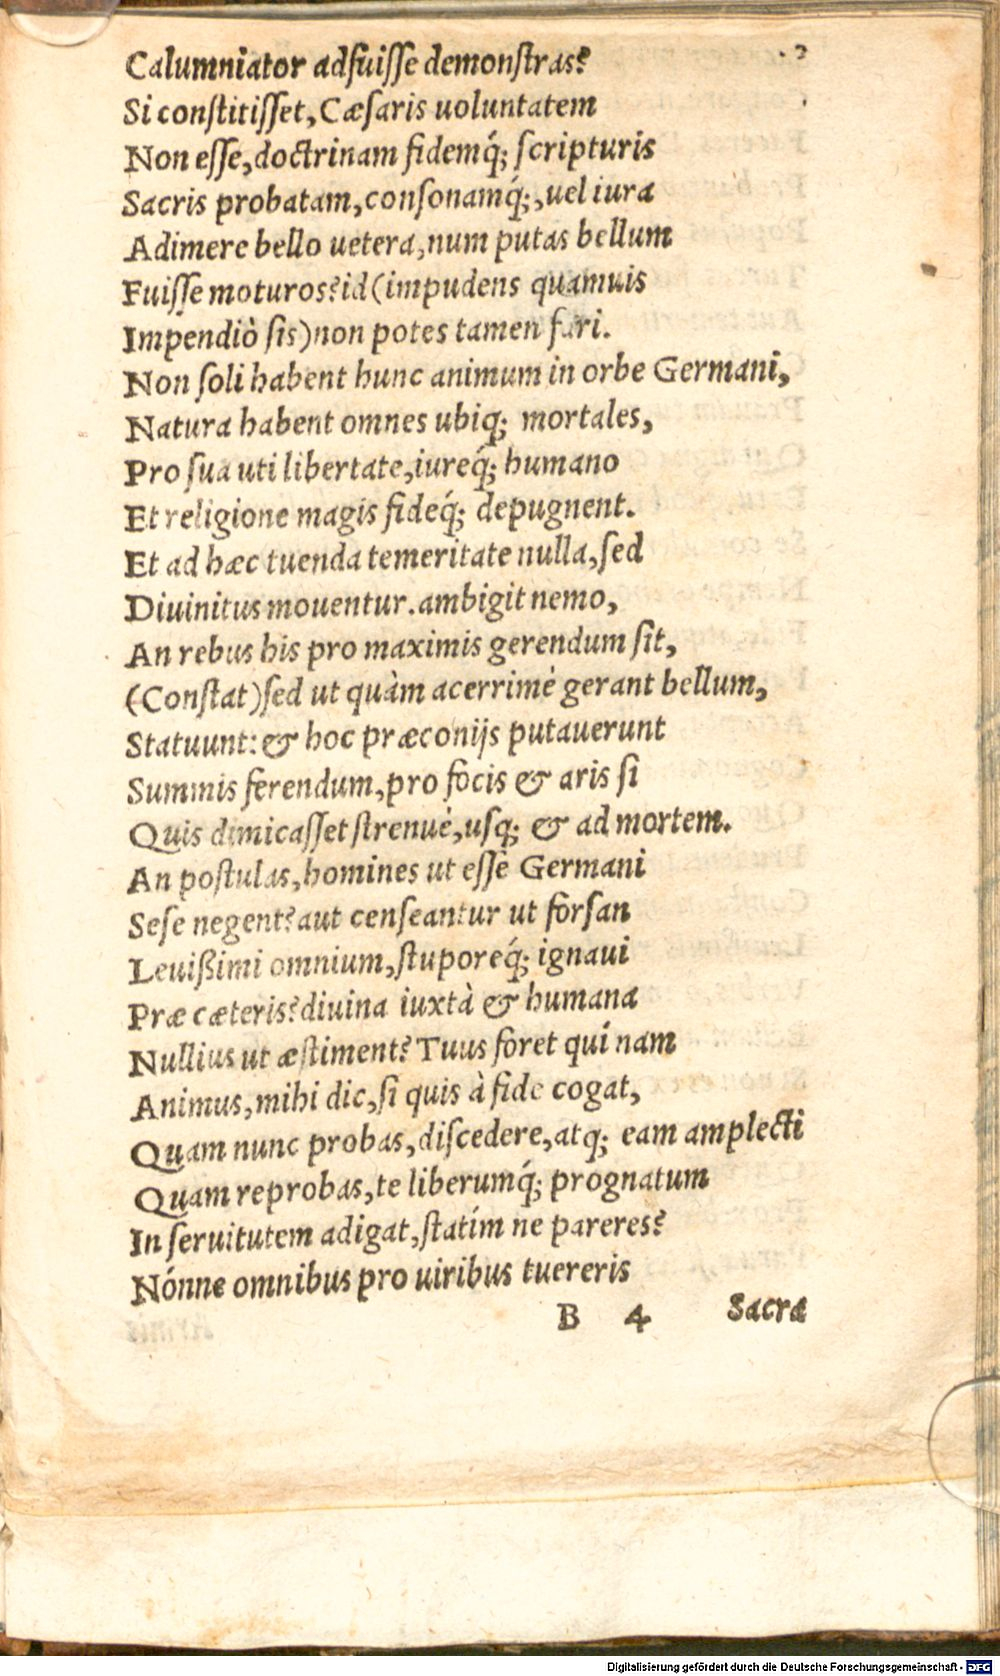 Calumniator adfuiſſe demonſtras?
Si conſtitiſſet, Cæſaris uoluntatem
Non eſſe, doctrinam fidemq́; ſcripturis
Sacris probatam, conſonamq́;, uel iura
Adimere bello uetera, num putas bellum
Fuiſſe moturos? id (impudens quamuis
Impendiò ſis) non potes tamen fari.
Non ſoli habent hunc animum in orbe Germani,
Natura habent omnes ubiq; mortales,
Pro ſua uti libertate, iureq́; humano
Et religione magis fideq́; depugnent.
Et ad hæc tuenda temeritate nulla, ſed
Diuinitus mouentur. ambigit nemo,
An rebus his pro maximis gerendum ſit,
(Conſtat) ſed ut quàm acerrimè gerant bellum,
Statuunt: & hoc præconijs putauerunt
Summis ferendum, pro focis & aris ſi
Quis dimicaſſet ſtrenuè, uſq; & ad mortem.
An poſtulas, homines ut eſſe Germani
Seſe negent? aut cenſeantur ut forſan
Leuißimi omnium, ſtuporeq́; ignaui
Præ cæteris? diuina iuxtà & humana
Nullius ut æſtiment? Tuus foret qui nam
Animus, mihi dic, ſi quis à fide cogat,
Quam nunc probas, diſcedere, atq; eam amplecti
Quam reprobas, te liberumq́; prognatum
In ſeruitutem adigat, ſtatim ne pareres?
Nónne omnibus pro uiribus tuereris
B 4 Sacra
Digitalisierung gefördert durch die Deutsche Forschungsgemeinschaft - DFG